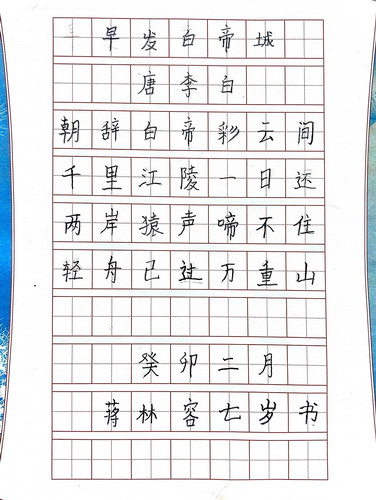 早发白帝城
唐李白
朝辞白帝彩云间
千里江陵一日还
两岸猿声啼不住
轻舟已过万重山
癸卯二月
蒋林容七岁书